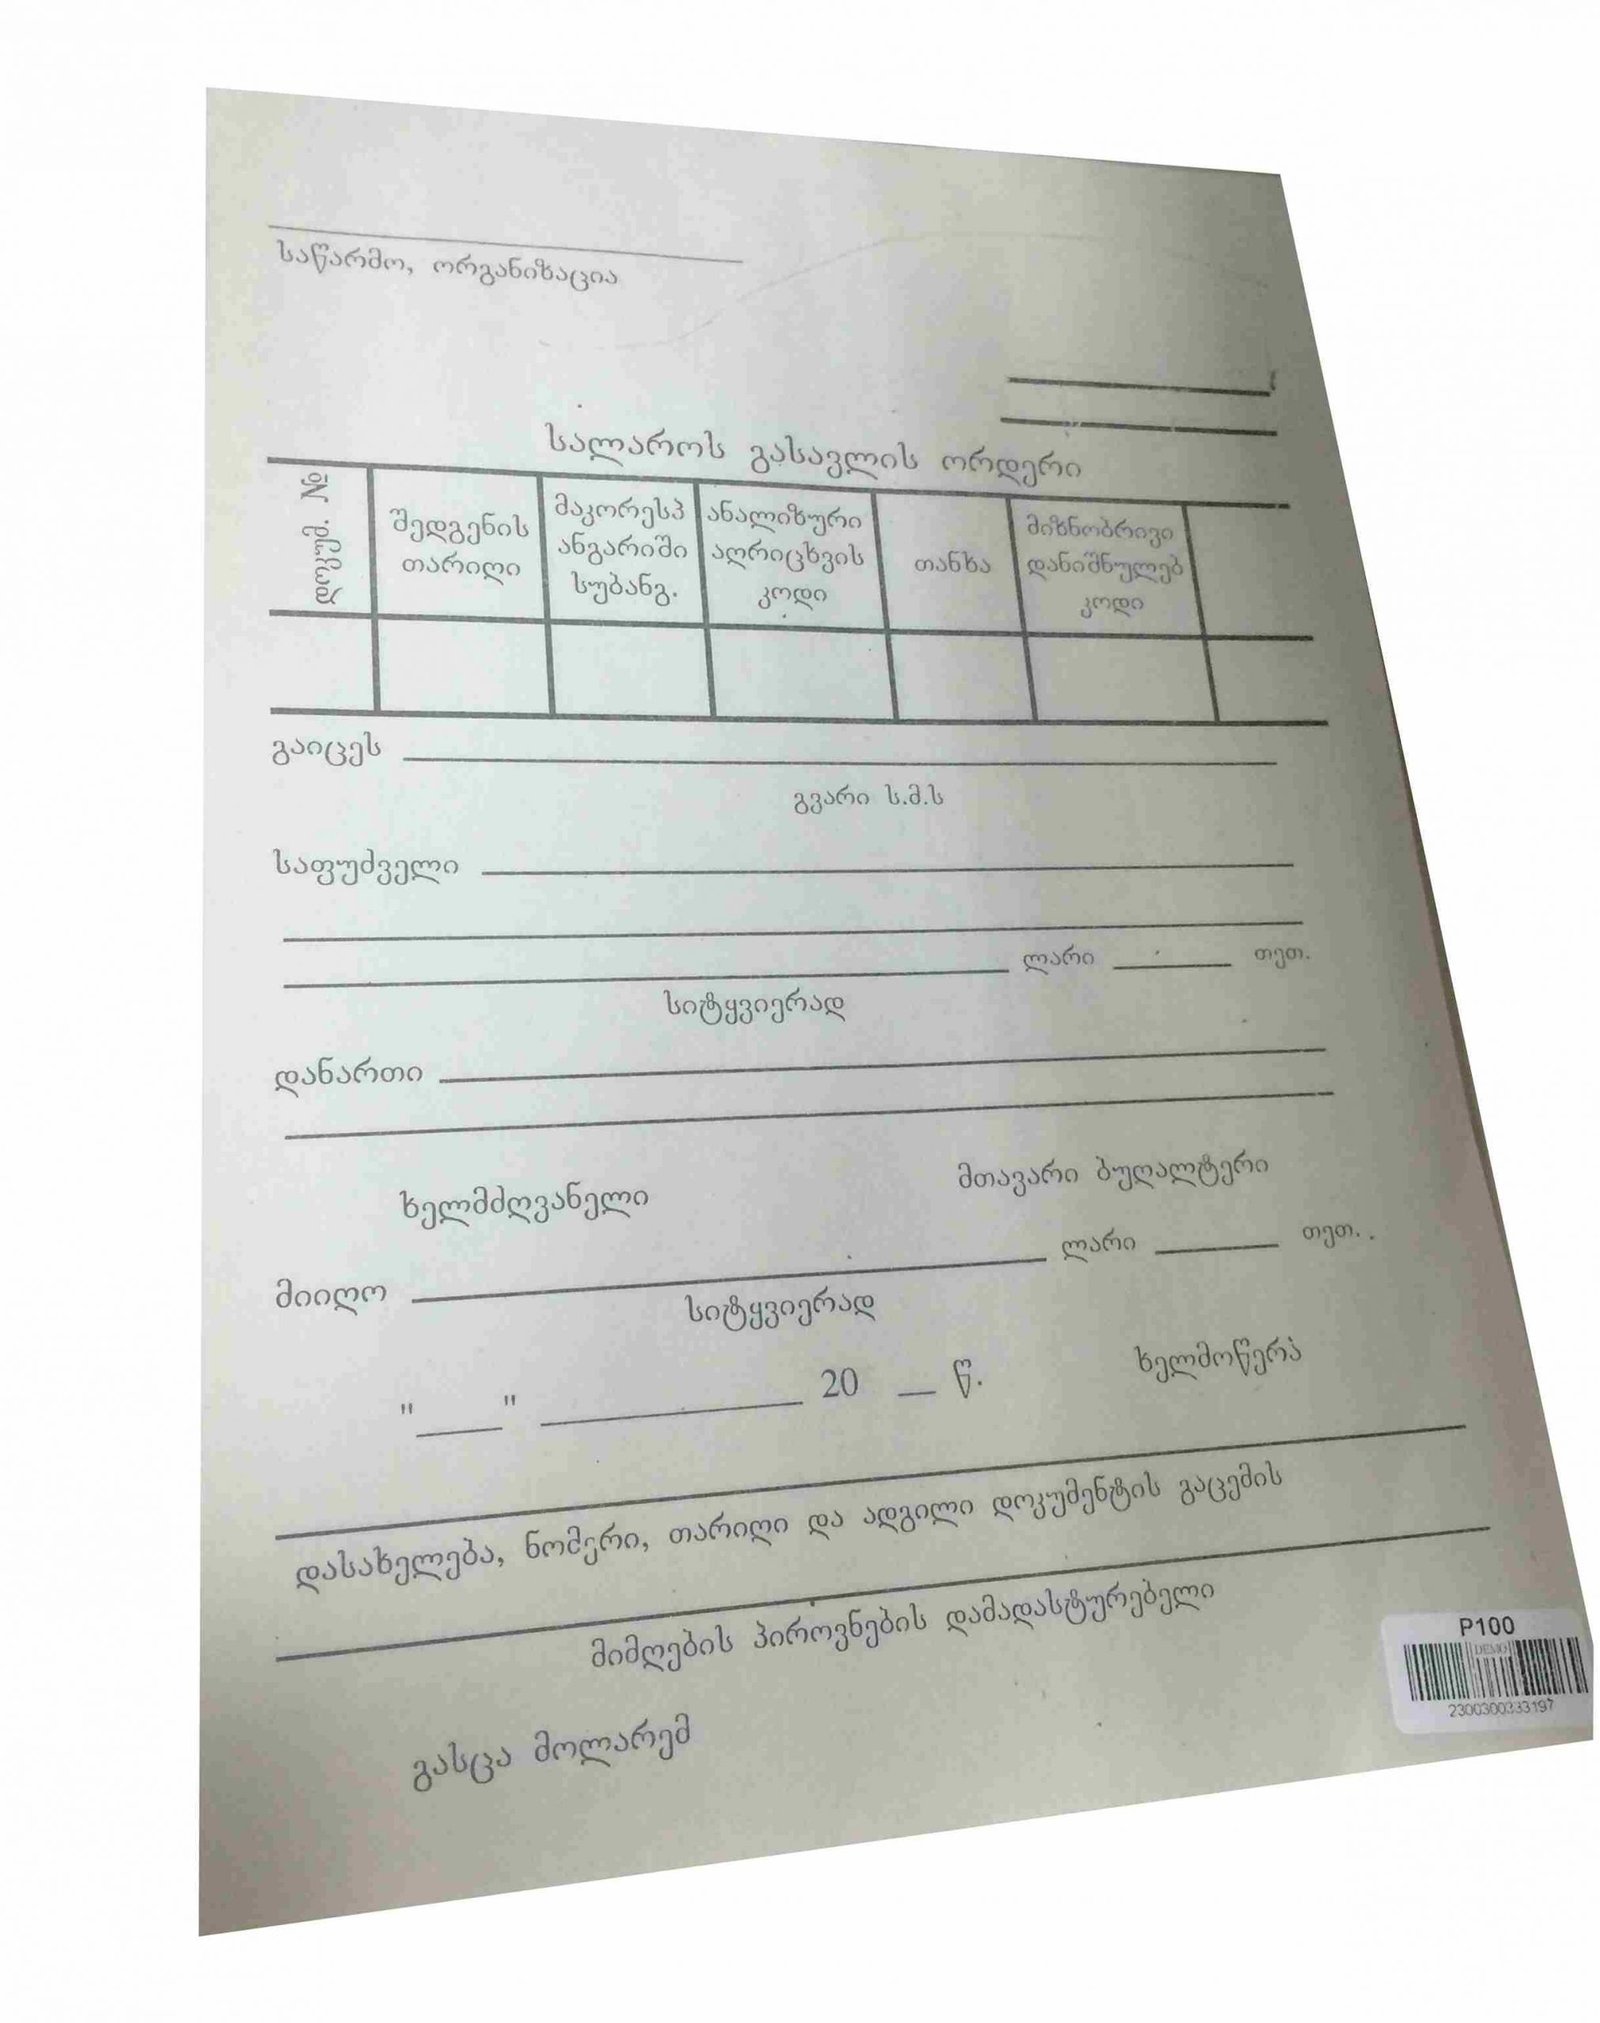 საწარმო, ორგანიზაცია
სალაროს გასავლის ორდერი
დოკუმ. №
შედგენის
თარიღი
მაკორესპ
ანგარიში
სუბანგ.
ანალიზური
აღრიცხვის
კოდი
თანხა
მიზნობრივი
დანიშნულებ
კოდი
გაიცეს
გვარი ს.მ.ს
საფუძველი
ლარი თეთ.
სიტყვიერად
დანართი
ხელმძღვანელი მთავარი ბუღალტერი
მიიღო ლარი თეთ.
სიტყვიერად
"____" ____________ 20 __ წ. ხელმოწერა
დასახელება, ნომერი, თარიღი და ადგილი დოკუმენტის გაცემის
მიმღების პიროვნების დამადასტურებელი
გასცა მოლარემ
P100
DEMO
2300300333197